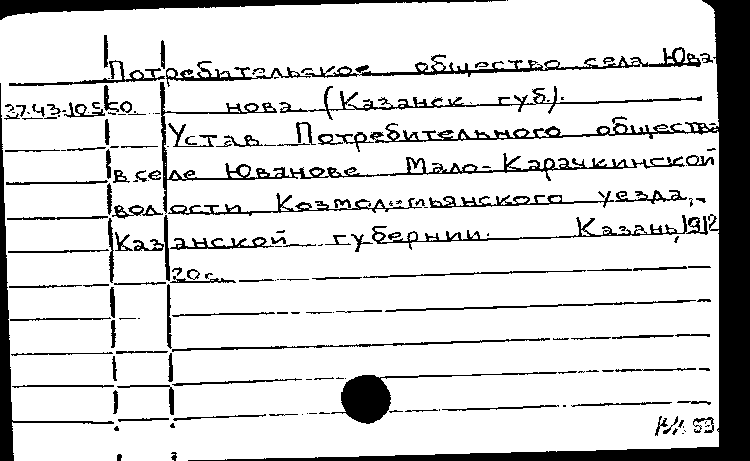 Потребительское общество села Юва-
37.43.10550. нова. (Казанск. губ.).
Устав Потребительного общества
в селе Юванове Мало-Карачкинской
волости, Козмодемьянского уезда,
Казанской губернии. Казань, 1912
20 с.